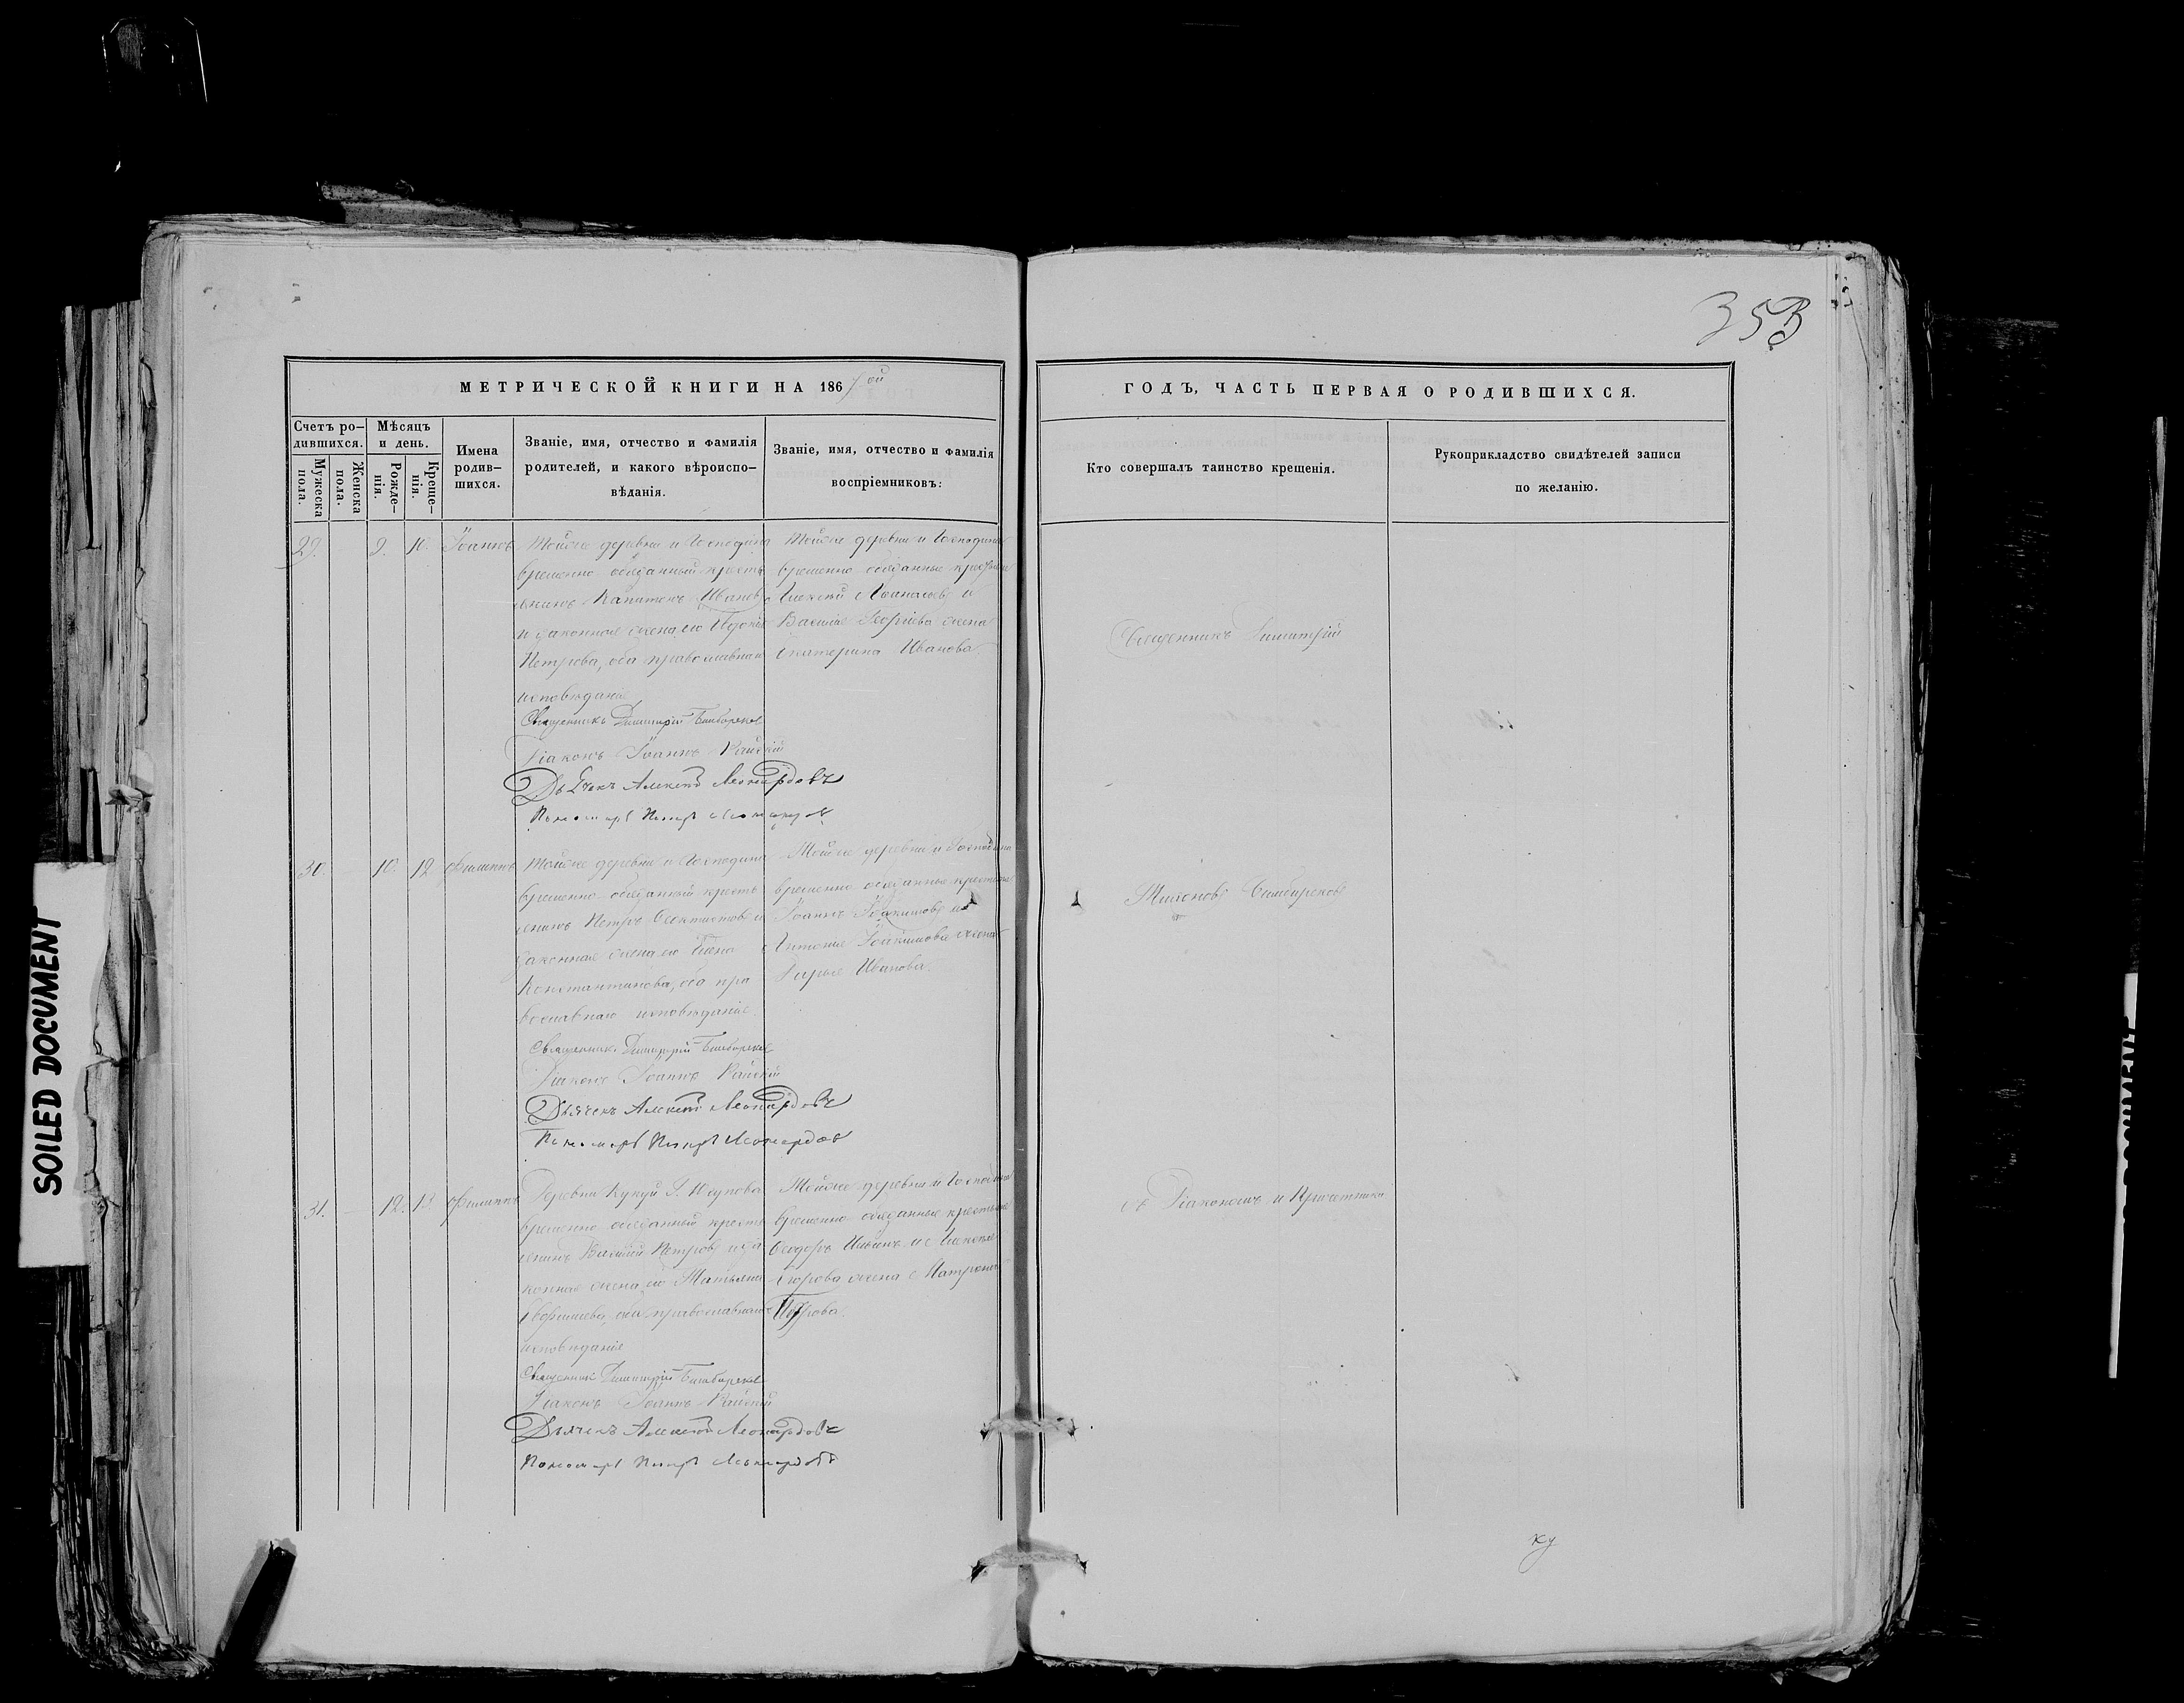 353
МЕТРИЧЕСКОЙ КНИГИ НА 1867 ой
ГОДЪ, ЧАСТЬ ПЕРВАЯ О РОДИВШИХСЯ.
Счетъ ро-
дившихся.
Мужеска
пола.
Женска
пола.
Мѣсяцъ
и день.
Рожде-
нія.
Креще-
нія.
Имена
родив-
шихся.
Званіе, имя, отчество и фамилія
родителей, и какого вѣроиспо-
вѣданія.
Званіе, имя, отчество и фамилія
воспріемниковъ:
Кто совершалъ таинство крещенія.
Рукоприкладство свидѣтелей записи
по желанію.
29. 9. 10. Іоаннъ
Тойже деревни и Господина
временно обязанный кресть
янинъ Капитонъ Ивановъ
и законная жена его
Петрова, оба православнаго
исповѣданія
Священникъ Димитрій
Діаконъ Іоаннъ Райскій
Дьячекъ Алексѣй Леонардовъ
Пономарь Петръ Леонардов
Тойже деревни и Господина
временно обязанные крестьяне
Алексѣй и
Василія жена
Екатерина Иванова
Священникъ Димитрій
30. 10. 12. Филиппъ
Тойже деревни и Господина
временно обязанный кресть
янинъ Петръ Феоктистовъ и
законная жена его
Константинова, оба пра
вославнаго исповѣданія.
Священникъ Димитрій
Діаконъ Іоаннъ Райскій
Дьячекъ Алексѣй Леонардовъ
Пономарь Петръ Леонардов
Тойже деревни и Господина
временно обязанные крестьяне
Іоаннъ Іоакимовъ и
Антонія Іоакимова жена
Дарья Иванова.
31. 12. 13. Филиппъ
Деревни Кукуй Г. Юсупова
временно обязанный кресть
янинъ Василій Петровъ и за
конная жена его Татьяна
оба православнаго
исповѣданія
Священникъ Димитрій
Діаконъ Іоаннъ Райскій
Дьячекъ Алексѣй Леонардовъ
Пономарь Петръ Леонардовъ
Тойже деревни и Господина
временно обязанные крестьяне
Феодоръ и Алексѣя
жена
Петрова.
съ Діакономъ и Причетники
ку
SOILED DOCUMENT